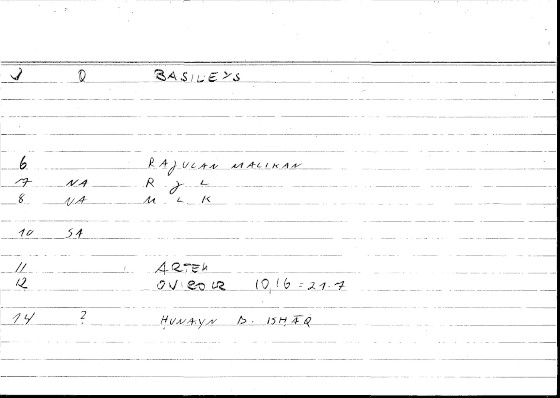 0 BASILEYS
6 RAJULAN MALIKAN
7 NA R J L
8 NA M L K
10 SA
11 ARTEH
12 10,16 = 21.7
14 ? ḤUNAYN B. ISḤĀQ